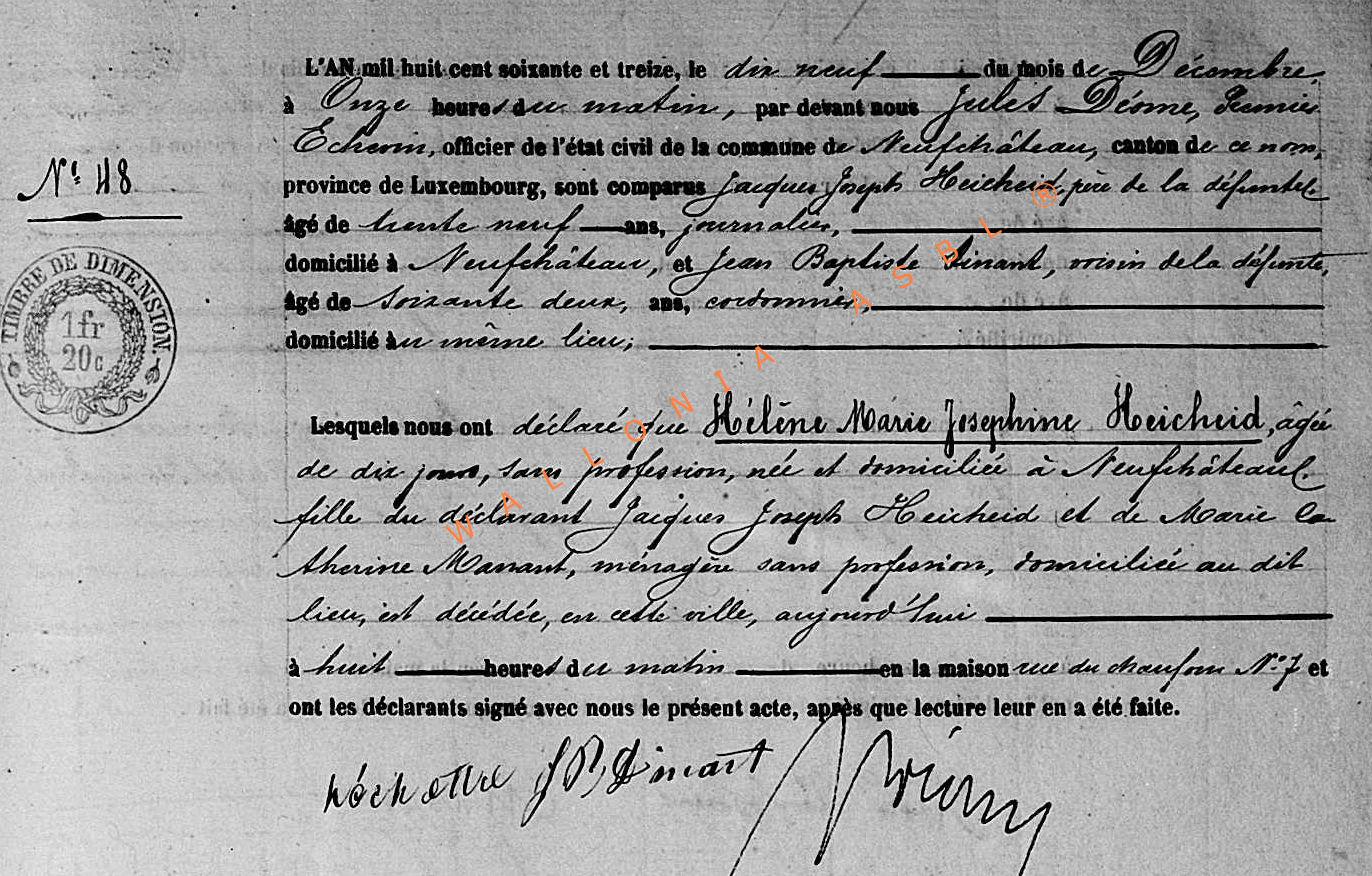 L'AN mil huit cent soixante et treize, le dix neuf du mois de Décembre
à Onze heures du matin, par devant nous Jules Déome, Premier
Echevin, officier de l'état civil de la commune de Neufchâteau, canton de ce nom,
province de Luxembourg, sont comparus Jacques Joseph Heicheid, père de la défunte
N° 48
âgé de trente neuf ans, journalier,
domicilié à Neufchâteau, et Jean Baptiste Dinant, voisin de la défunte,
âgé de soixante deux, ans, cordonnier,
domicilié au même lieu;
TIMBRE DE DIMENSION.
1 fr
20 c
Lesquels nous ont déclaré que Hélène Marie Josephine Heicheid, âgée
de dix jours, sans profession, née et domiciliée à Neufchâteau
fille du déclarant Jacques Joseph Heicheid et de Marie Ca
therine Manant, ménagère sans profession, domiciliée au dit
lieu, est décédée, en cette ville, aujourd'hui
à huit heures du matin en la maison rue du chaufour N° 7 et
ont les déclarants signé avec nous le présent acte, après que lecture leur en a été faite.
J B Dinant
WALLONIA ASBL ®